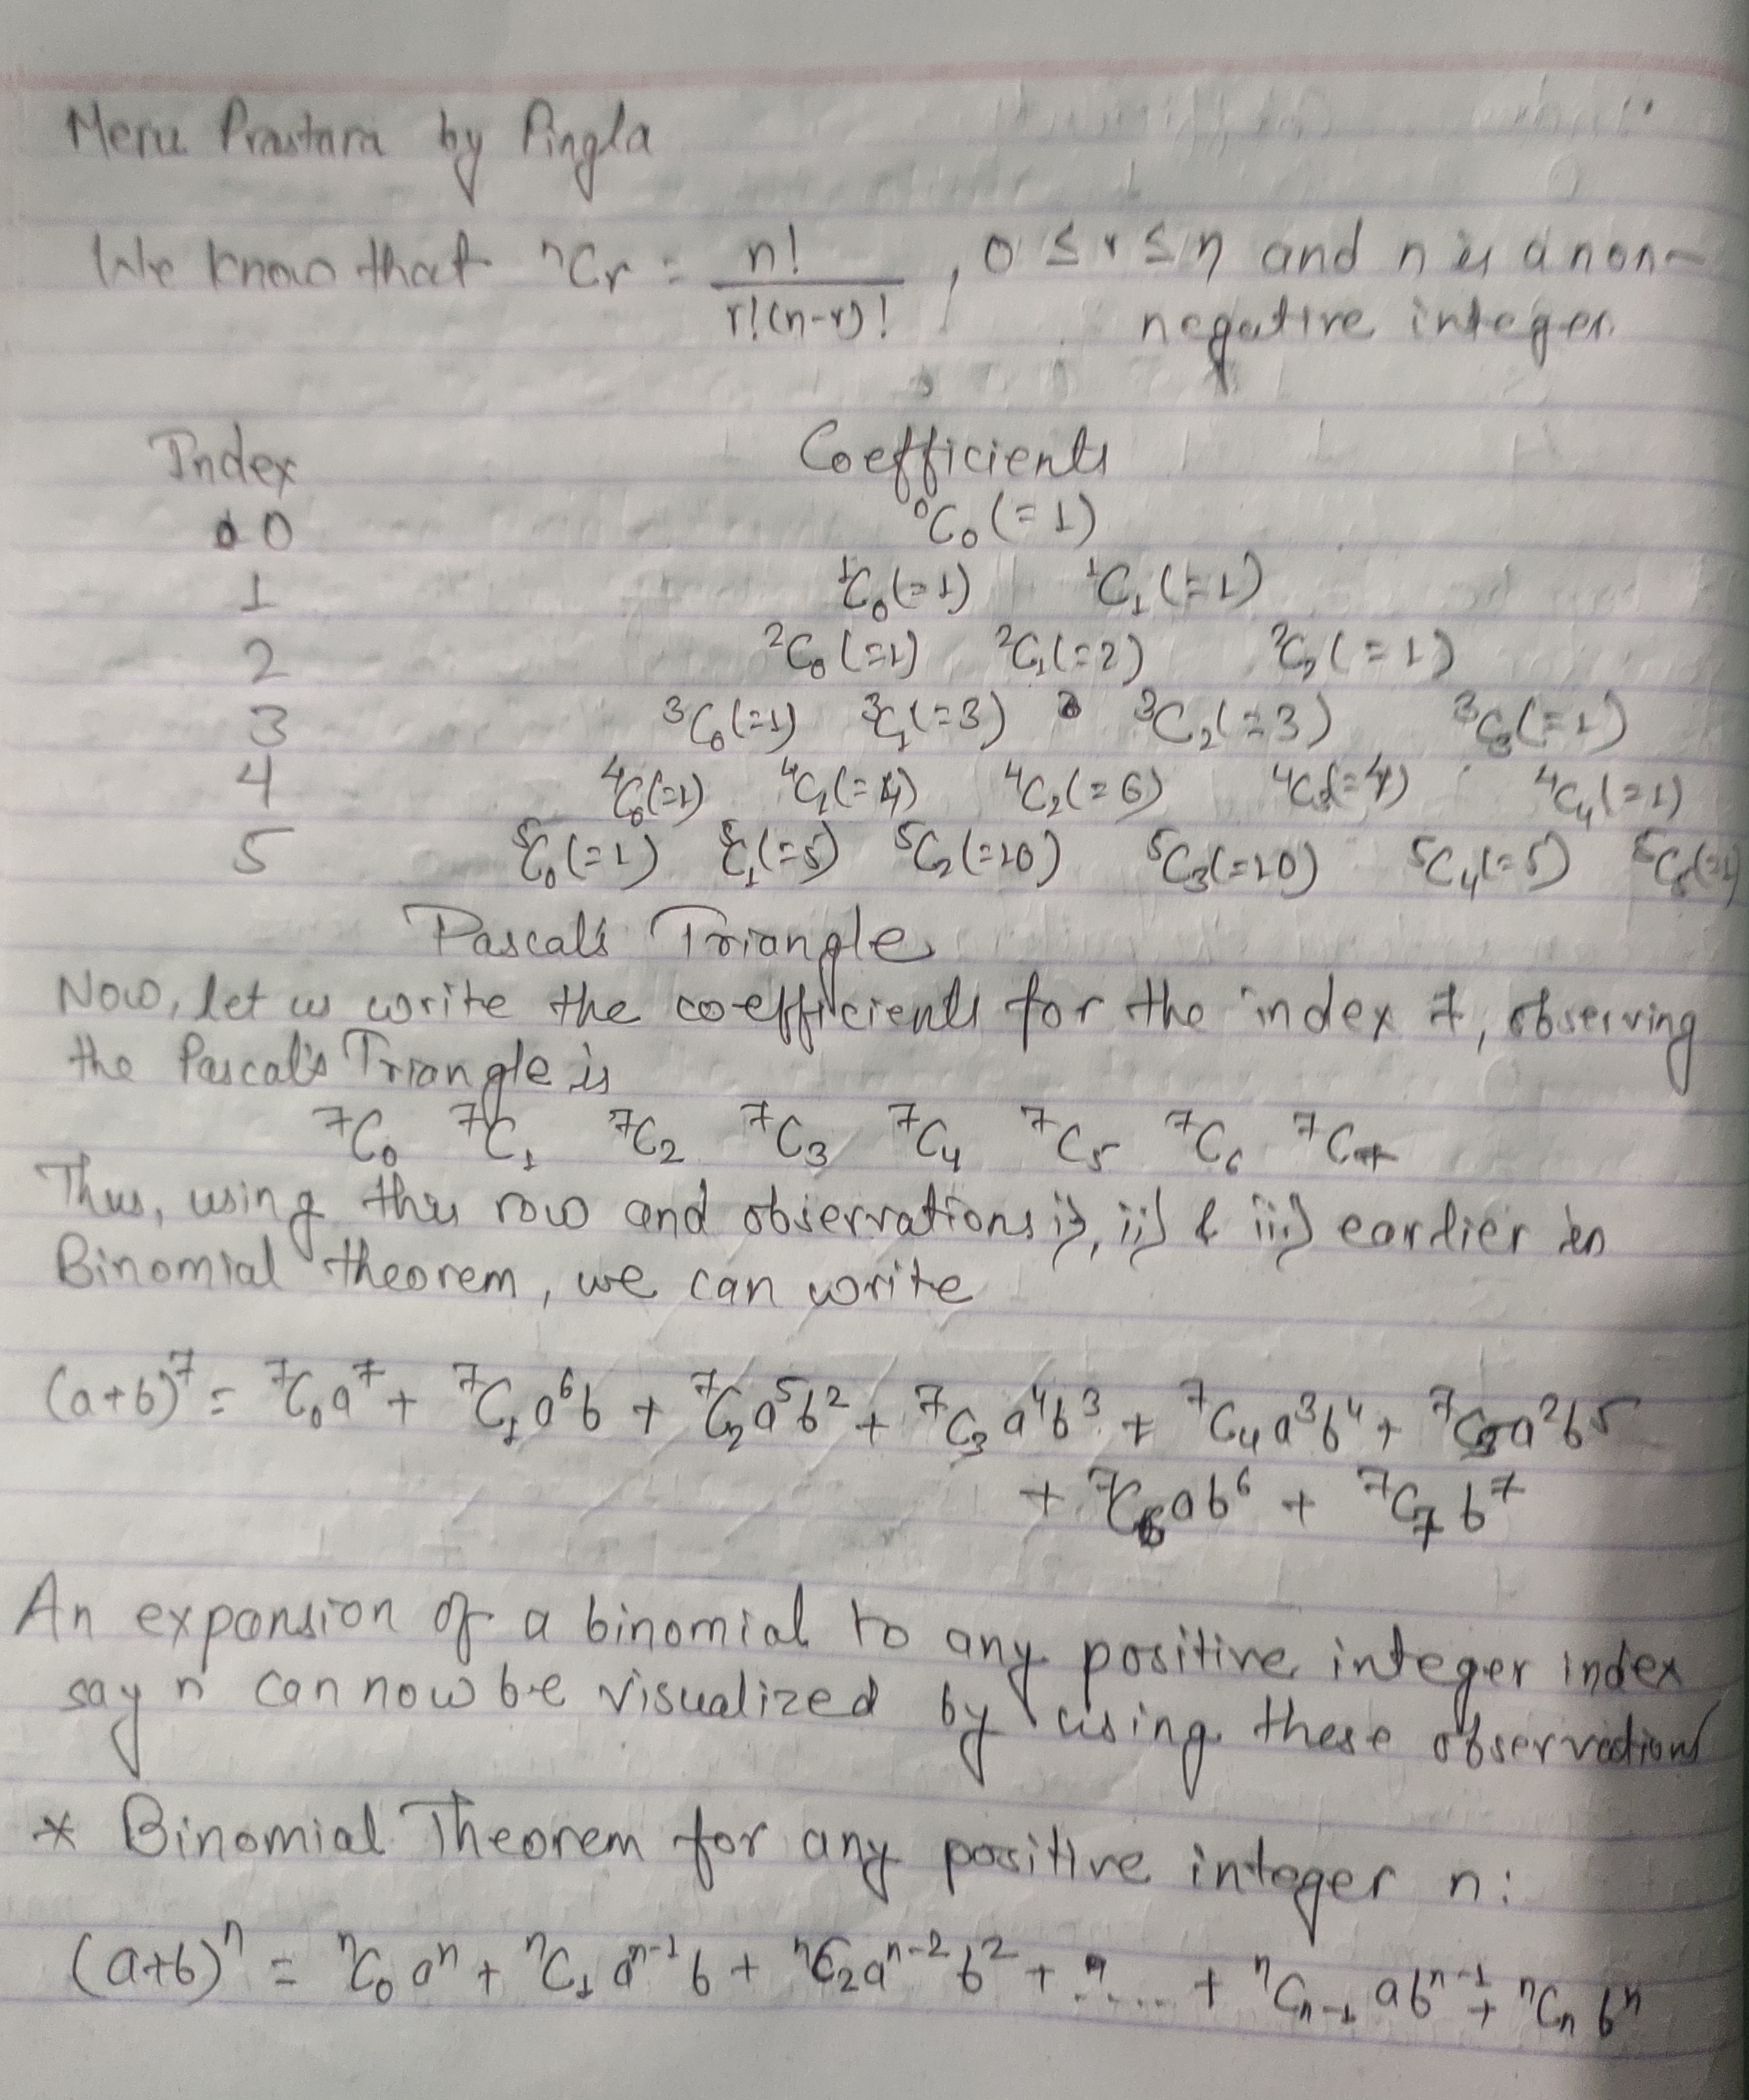 Meru Prastara by Pingla
We know that ⁿCr = n! / r!(n-r)! , 0 ≤ r ≤ n and n is a non-
negative integer.
Index Coefficients
0 ⁰C₀(=1)
1 ¹C₀(=1) ¹C₁(=1)
2 ²C₀(=1) ²C₁(=2) ²C₂(=1)
3 ³C₀(=1) ³C₁(=3) ³C₂(=3) ³C₃(=1)
4 ⁴C₀(=1) ⁴C₁(=4) ⁴C₂(=6) ⁴C₃(=4) ⁴C₄(=1)
5 ⁵C₀(=1) ⁵C₁(=5) ⁵C₂(=10) ⁵C₃(=10) ⁵C₄(=5) ⁵C₅(=1)
Pascal's Triangle
Now, let us write the coefficients for the index 7, observing
the Pascal's Triangle is
⁷C₀ ⁷C₁ ⁷C₂ ⁷C₃ ⁷C₄ ⁷C₅ ⁷C₆ ⁷C₇
Thus, using this row and observations i), ii) & iii) earlier in
Binomial theorem, we can write
(a+b)⁷ = ⁷C₀a⁷ + ⁷C₁a⁶b + ⁷C₂a⁵b² + ⁷C₃a⁴b³ + ⁷C₄a³b⁴ + ⁷C₅a²b⁵
+ ⁷C₆ab⁶ + ⁷C₇b⁷
An expansion of a binomial to any positive integer index
say n can now be visualized by using these observations
* Binomial Theorem for any positive integer n:
(a+b)ⁿ = ⁿC₀aⁿ + ⁿC₁aⁿ⁻¹b + ⁿC₂aⁿ⁻²b² + ..... + ⁿCₙ₋₁abⁿ⁻¹ + ⁿCₙbⁿ